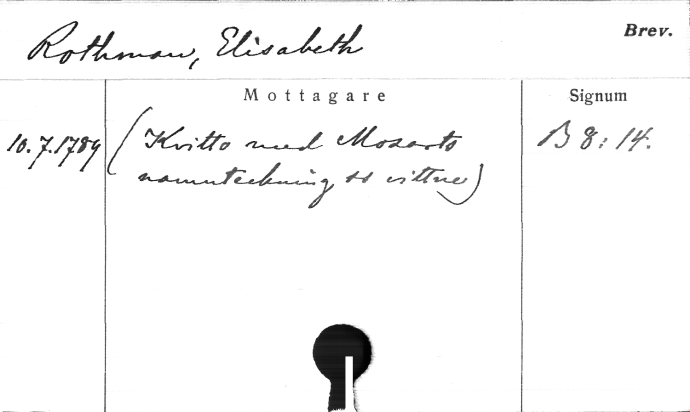 Rothman, Elisabeth
Brev.
Mottagare
Signum
10.7.1789 (Kvitto med Mozarts B 8:14.
namnteckning ss vittne)